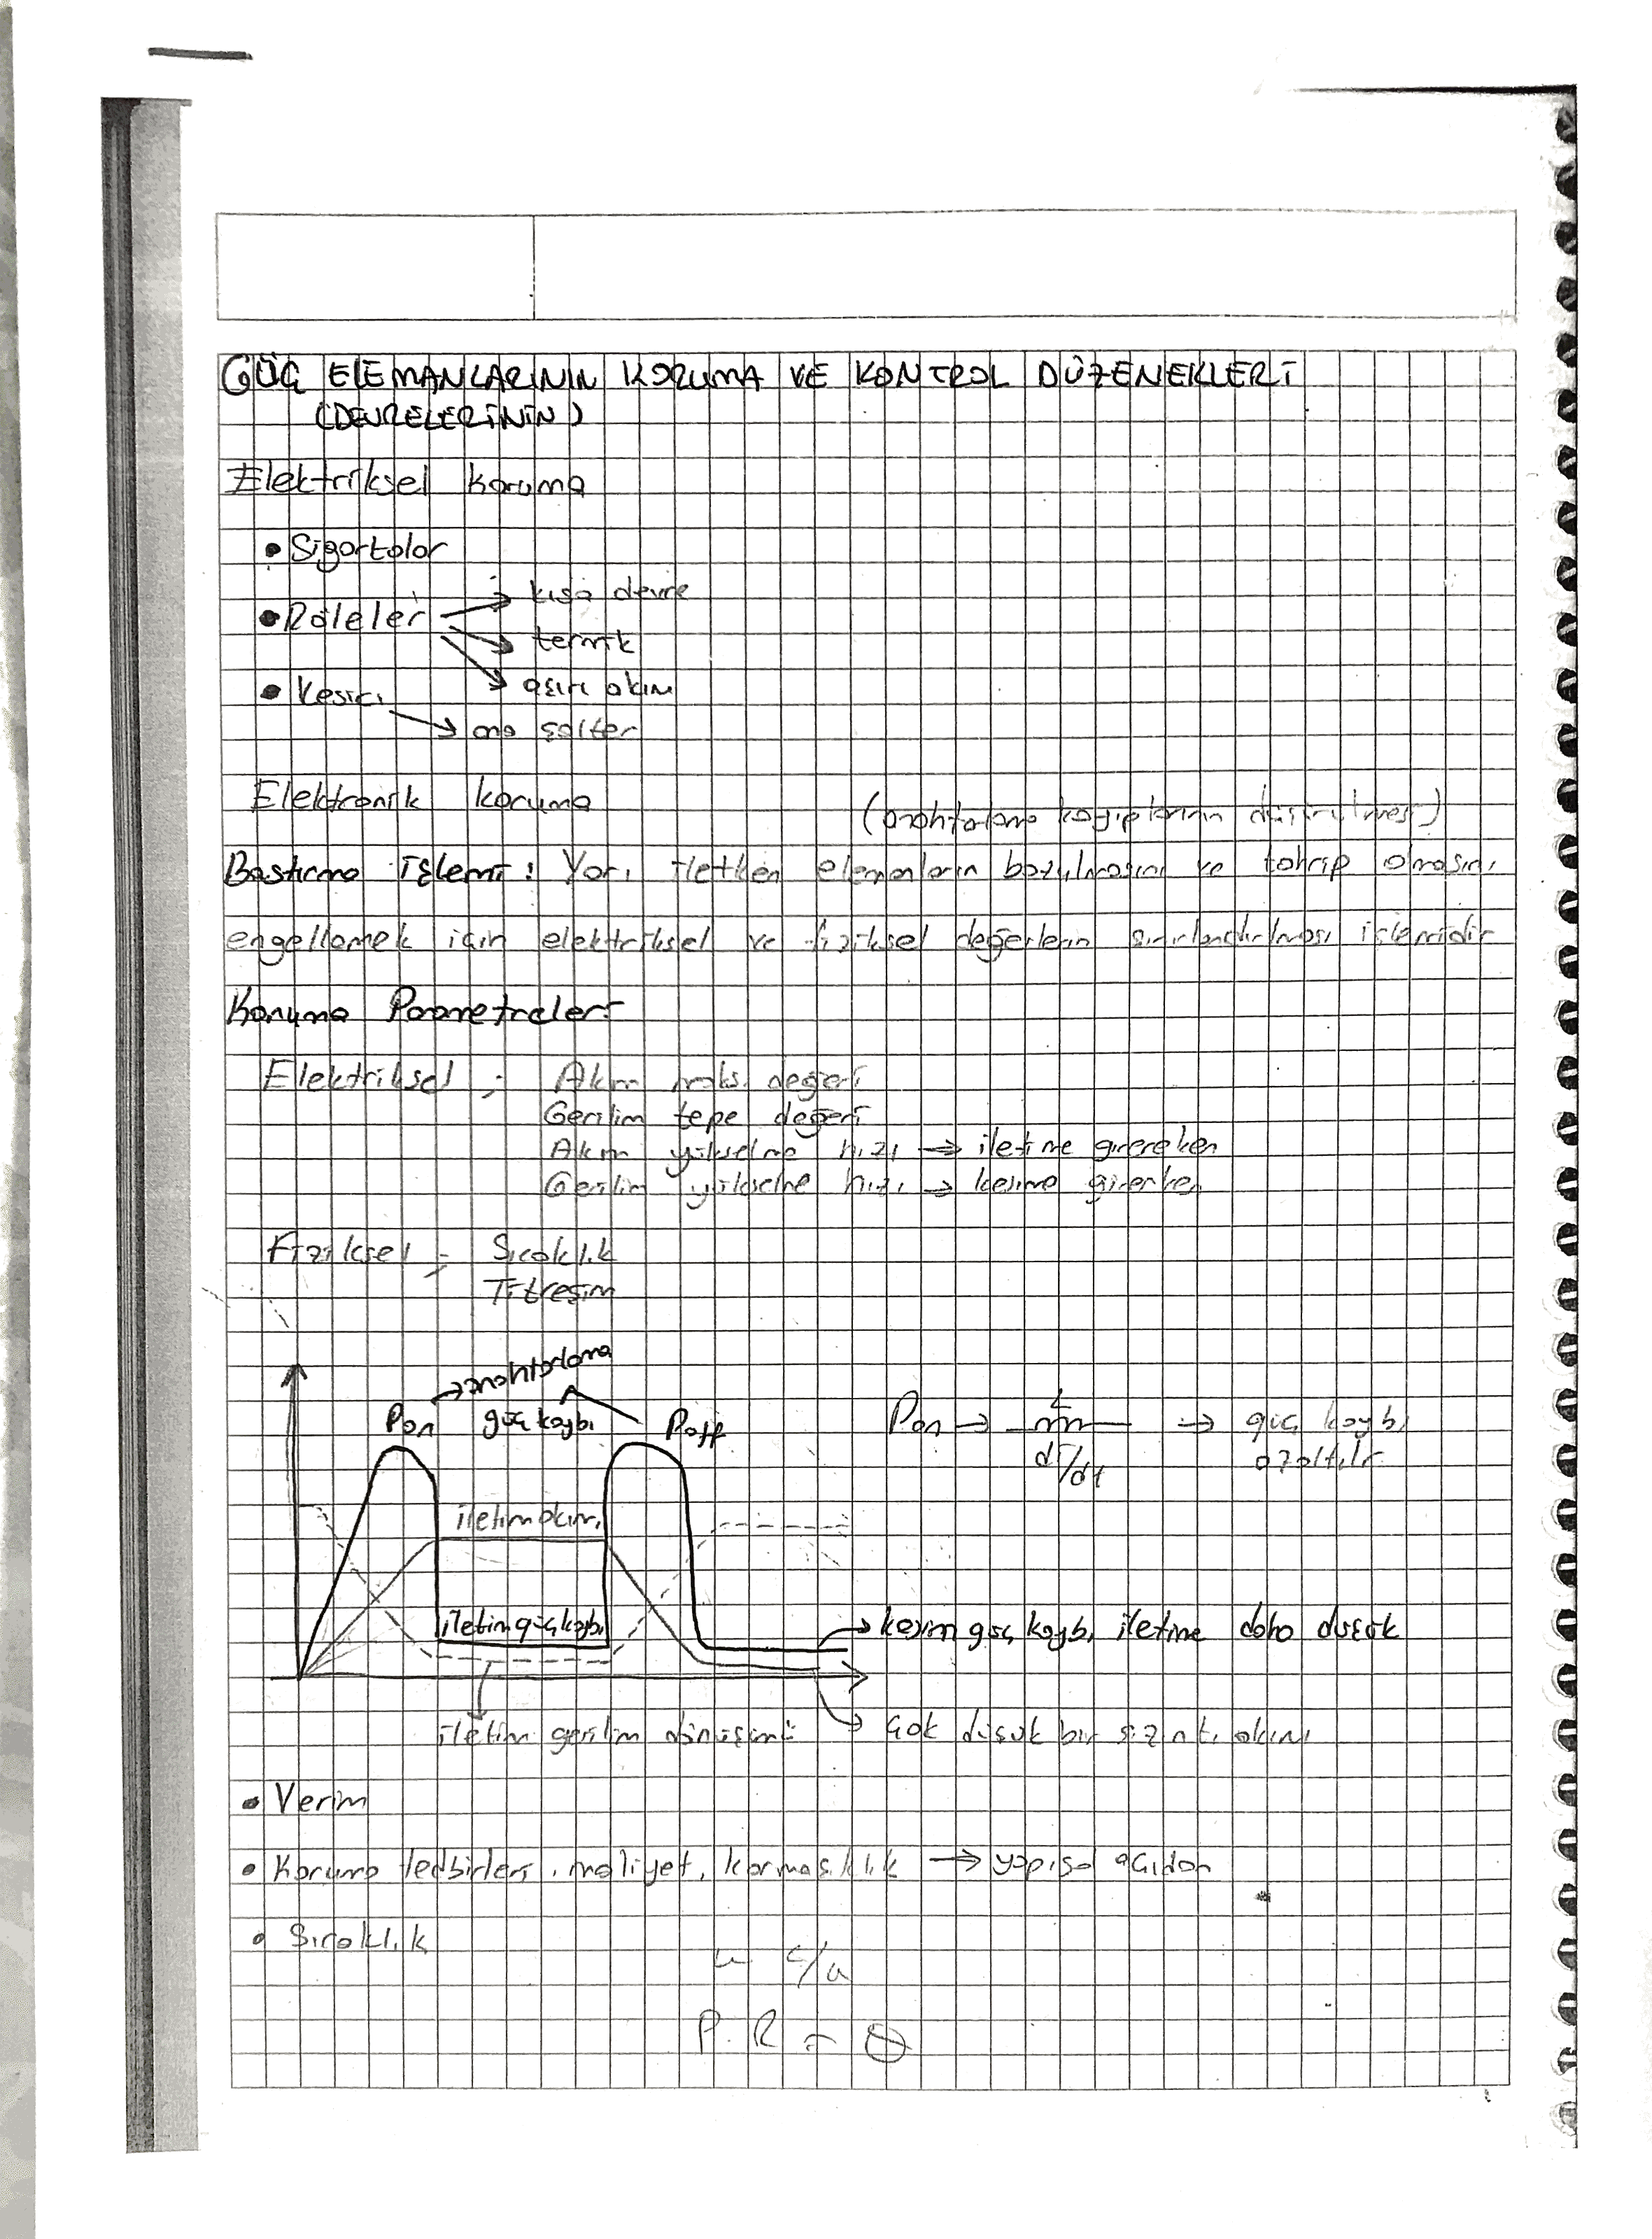 GÜÇ ELEMANLARININ KORUMA VE KONTROL DÜZENEKLERİ
(DEVRELERİNİN)
Elektriksel Koruma
• Sigortalar
• Röleler → kısa devre
→ termik
→ aşırı akım
• Kesici
→ ana şalter
Elektronik koruma (anahtarlama kayıplarının düşürülmesi)
Bastırma işlemi: Yarı iletken elemanların bozulmasını ve tahrip olmasını
engellemek için elektriksel ve fiziksel değerlerin sınırlandırılması işlemidir
Koruma Parametreleri
Elektriksel ; Akım maks. değeri
Gerilim tepe değeri
Akım yükselme hızı → iletime girereken
Gerilim yükselme hızı → kesime girerken
Fiziksel ; Sıcaklık
Titreşim
→ anahtarlama
Pon güç kaybı Poff
Pon → L → güç kaybı
di/dt azaltılır
iletim akımı
iletim güç kaybı
→ kesim güç kaybı iletime daha düşük
iletim gerilim dönüşümü → çok düşük bir sızıntı akımı
• Verim
• Koruma tedbirleri, maliyet, karmaşıklık → yapısal açıdan
• Sıcaklık
w c/w
P.R =